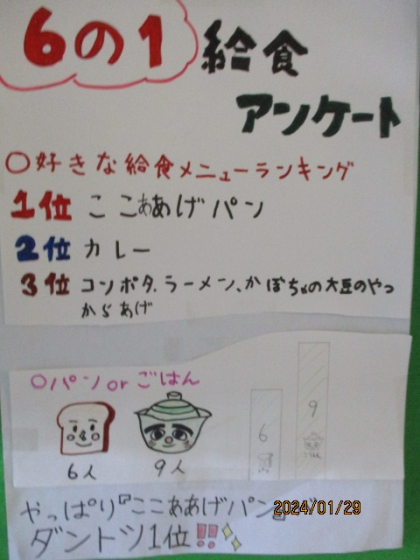 6の1 給食
アンケート
○好きな給食メニューランキング
1位 ここああげパン
2位 カレー
3位 コンポタ、ラーメン、かぼちゃの大豆のやつ
からあげ
○パンorごはん
6 9
6人 9人
やっぱり『ここああげパン』が
2024/01/29
ダントツ1位!!